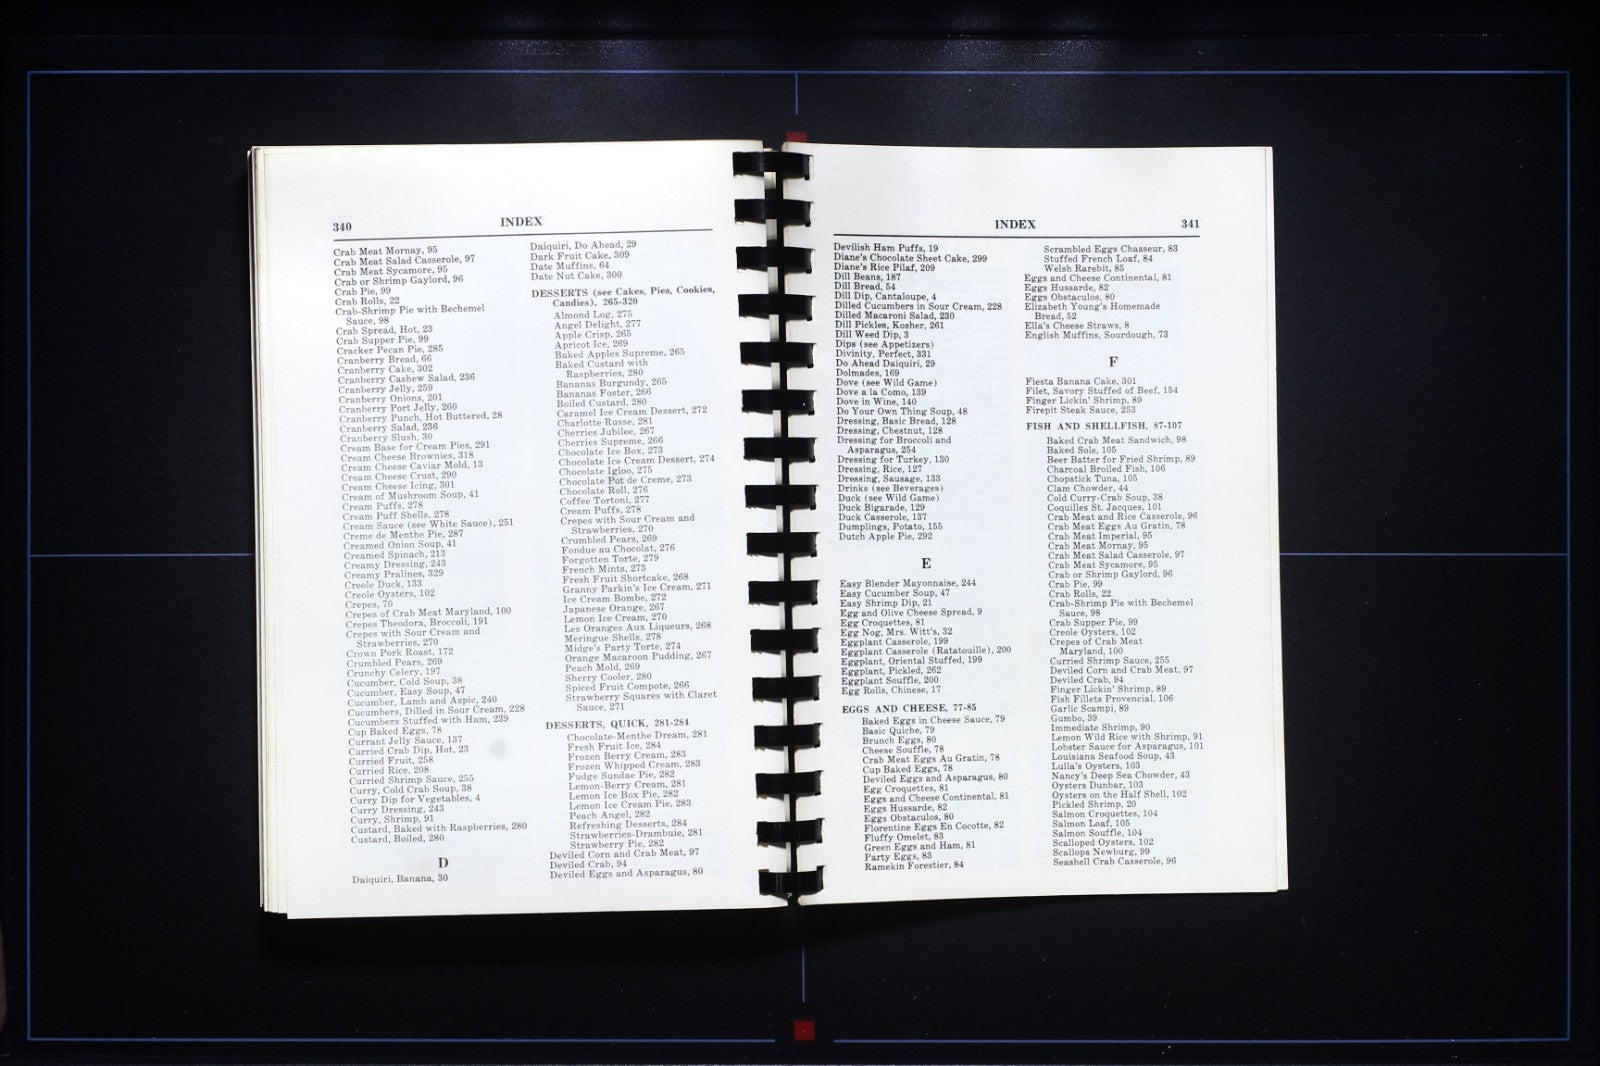 340
INDEX
Crab Meat Mornay, 95
Crab Meat Salad Casserole, 97
Crab Meat Sycamore, 95
Crab or Shrimp Gaylord, 96
Crab Pie, 99
Crab Rolls, 22
Crab-Shrimp Pie with Bechemel
Sauce, 98
Crab Spread, Hot, 23
Crab Supper Pie, 99
Cracker Pecan Pie, 285
Cranberry Bread, 66
Cranberry Cake, 302
Cranberry Cashew Salad, 236
Cranberry Jelly, 259
Cranberry Onions, 201
Cranberry Port Jelly, 260
Cranberry Punch, Hot Buttered, 28
Cranberry Salad, 236
Cranberry Slush, 30
Cream Base for Cream Pies, 291
Cream Cheese Brownies, 318
Cream Cheese Caviar Mold, 13
Cream Cheese Crust, 290
Cream Cheese Icing, 301
Cream of Mushroom Soup, 41
Cream Puffs, 278
Cream Puff Shells, 278
Cream Sauce (see White Sauce), 251
Creme de Menthe Pie, 287
Creamed Onion Soup, 41
Creamed Spinach, 213
Creamy Dressing, 243
Creamy Pralines, 329
Creole Duck, 133
Creole Oysters, 102
Crepes, 70
Crepes of Crab Meat Maryland, 100
Crepes Theodora, Broccoli, 191
Crepes with Sour Cream and
Strawberries, 270
Crown Pork Roast, 172
Crumbled Pears, 269
Crunchy Celery, 197
Cucumber, Cold Soup, 38
Cucumber, Easy Soup, 47
Cucumber, Lamb and Aspic, 240
Cucumbers, Dilled in Sour Cream, 228
Cucumbers Stuffed with Ham, 239
Cup Baked Eggs, 78
Currant Jelly Sauce, 137
Curried Crab Dip, Hot, 23
Curried Fruit, 258
Curried Rice, 208
Curried Shrimp Sauce, 255
Curry, Cold Crab Soup, 38
Curry Dip for Vegetables, 4
Curry Dressing, 243
Curry, Shrimp, 91
Custard, Baked with Raspberries, 280
Custard, Boiled, 280
D
Daiquiri, Banana, 30
Daiquiri, Do Ahead, 29
Dark Fruit Cake, 309
Date Muffins, 64
Date Nut Cake, 300
DESSERTS (see Cakes, Pies, Cookies,
Candies), 265-320
Almond Log, 275
Angel Delight, 277
Apple Crisp, 265
Apricot Ice, 269
Baked Apples Supreme, 265
Baked Custard with
Raspberries, 280
Bananas Burgundy, 265
Bananas Foster, 266
Boiled Custard, 280
Caramel Ice Cream Dessert, 272
Charlotte Russe, 281
Cherries Jubilee, 267
Cherries Supreme, 266
Chocolate Ice Box, 273
Chocolate Ice Cream Dessert, 274
Chocolate Igloo, 275
Chocolate Pot de Creme, 273
Chocolate Roll, 276
Coffee Tortoni, 277
Cream Puffs, 278
Crepes with Sour Cream and
Strawberries, 270
Crumbled Pears, 269
Fondue au Chocolat, 276
Forgotten Torte, 279
French Mints, 273
Fresh Fruit Shortcake, 268
Granny Parkin's Ice Cream, 271
Ice Cream Bombe, 272
Japanese Orange, 267
Lemon Ice Cream, 270
Les Oranges Aux Liqueurs, 268
Meringue Shells, 278
Midge's Party Torte, 274
Orange Macaroon Pudding, 267
Peach Mold, 269
Sherry Cooler, 280
Spiced Fruit Compote, 266
Strawberry Squares with Claret
Sauce, 271
DESSERTS, QUICK, 281-284
Chocolate-Menthe Dream, 281
Fresh Fruit Ice, 284
Frozen Berry Cream, 283
Frozen Whipped Cream, 283
Fudge Sundae Pie, 282
Lemon-Berry Cream, 281
Lemon Ice Box Pie, 282
Lemon Ice Cream Pie, 283
Peach Angel, 282
Refreshing Desserts, 284
Strawberries-Drambuie, 281
Strawberry Pie, 282
Deviled Corn and Crab Meat, 97
Deviled Crab, 94
Deviled Eggs and Asparagus, 80
INDEX
341
Devilish Ham Puffs, 19
Diane's Chocolate Sheet Cake, 299
Diane's Rice Pilaf, 209
Dill Beans, 187
Dill Bread, 54
Dill Dip, Cantaloupe, 4
Dilled Cucumbers in Sour Cream, 228
Dilled Macaroni Salad, 230
Dill Pickles, Kosher, 261
Dill Weed Dip, 3
Dips (see Appetizers)
Divinity, Perfect, 331
Do Ahead Daiquiri, 29
Dolmades, 169
Dove (see Wild Game)
Dove a la Como, 139
Dove in Wine, 140
Do Your Own Thing Soup, 48
Dressing, Basic Bread, 128
Dressing, Chestnut, 128
Dressing for Broccoli and
Asparagus, 254
Dressing for Turkey, 130
Dressing, Rice, 127
Dressing, Sausage, 133
Drinks (see Beverages)
Duck (see Wild Game)
Duck Bigarade, 129
Duck Casserole, 137
Dumplings, Potato, 155
Dutch Apple Pie, 292
E
Easy Blender Mayonnaise, 244
Easy Cucumber Soup, 47
Easy Shrimp Dip, 21
Egg and Olive Cheese Spread, 9
Egg Croquettes, 81
Egg Nog, Mrs. Witt's, 32
Eggplant Casserole, 199
Eggplant Casserole (Ratatouille), 200
Eggplant, Oriental Stuffed, 199
Eggplant, Pickled, 262
Eggplant Souffle, 200
Egg Rolls, Chinese, 17
EGGS AND CHEESE, 77-85
Baked Eggs in Cheese Sauce, 79
Basic Quiche, 79
Brunch Eggs, 80
Cheese Souffle, 78
Crab Meat Eggs Au Gratin, 78
Cup Baked Eggs, 78
Deviled Eggs and Asparagus, 80
Egg Croquettes, 81
Eggs and Cheese Continental, 81
Eggs Hussarde, 82
Eggs Obstaculos, 80
Florentine Eggs En Cocotte, 82
Fluffy Omelet, 83
Green Eggs and Ham, 81
Party Eggs, 83
Ramekin Forestier, 84
Scrambled Eggs Chasseur, 83
Stuffed French Loaf, 84
Welsh Rarebit, 85
Eggs and Cheese Continental, 81
Eggs Hussarde, 82
Eggs Obstaculos, 80
Elizabeth Young's Homemade
Bread, 52
Ella's Cheese Straws, 8
English Muffins, Sourdough, 73
F
Fiesta Banana Cake, 301
Filet, Savory Stuffed of Beef, 154
Finger Lickin' Shrimp, 89
Firepit Steak Sauce, 253
FISH AND SHELLFISH, 87-107
Baked Crab Meat Sandwich, 98
Baked Sole, 105
Beer Batter for Fried Shrimp, 89
Charcoal Broiled Fish, 106
Chopstick Tuna, 105
Clam Chowder, 44
Cold Curry-Crab Soup, 38
Coquilles St. Jacques, 101
Crab Meat and Rice Casserole, 96
Crab Meat Eggs Au Gratin, 78
Crab Meat Imperial, 95
Crab Meat Mornay, 95
Crab Meat Salad Casserole, 97
Crab Meat Sycamore, 95
Crab or Shrimp Gaylord, 96
Crab Pie, 99
Crab Rolls, 22
Crab-Shrimp Pie with Bechemel
Sauce, 98
Crab Supper Pie, 99
Creole Oysters, 102
Crepes of Crab Meat
Maryland, 100
Curried Shrimp Sauce, 255
Deviled Corn and Crab Meat, 97
Deviled Crab, 94
Finger Lickin' Shrimp, 89
Fish Fillets Provencial, 106
Garlic Scampi, 89
Gumbo, 39
Immediate Shrimp, 90
Lemon Wild Rice with Shrimp, 91
Lobster Sauce for Asparagus, 101
Louisiana Seafood Soup, 43
Lulla's Oysters, 103
Nancy's Deep Sea Chowder, 43
Oysters Dunbar, 103
Oysters on the Half Shell, 102
Pickled Shrimp, 20
Salmon Croquettes, 104
Salmon Loaf, 105
Salmon Souffle, 104
Scalloped Oysters, 102
Scallops Newburg, 99
Seashell Crab Casserole, 96